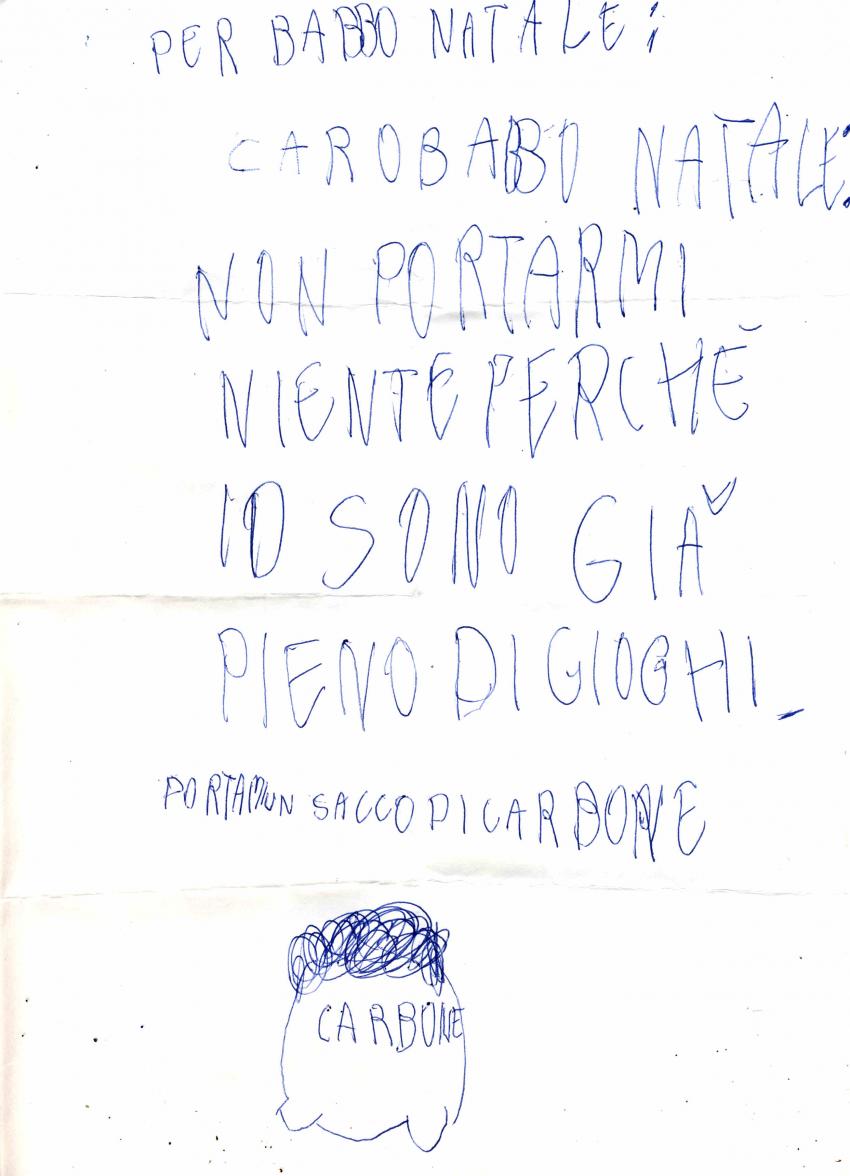 PER BABBO NATALE:
CARO BABBO NATALE:
NON PORTARMI
NIENTE PERCHÈ
IO SONO GIÀ
PIENO DI GIOGHI_
PORTAMI UN SACCO DI CARBONE
CARBONE